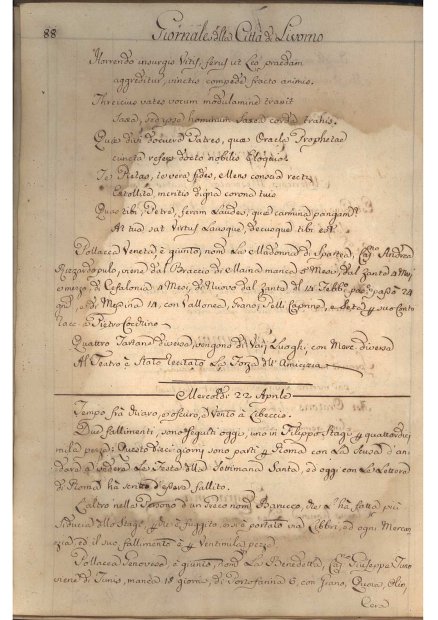 88 Giornale della Città di Livorno
Horrendo insurgit Vitus, ferus ut Leo praedam
aggreditur, vinctis compede fracto animis.
Threicius vates vocum modulamine traxit
Saxa, sed ipse hominum saxea corda trahis.
Quae docuere Patres, quae Oracla Prophetae
cuncta refers docto nobilis Eloquio.
Te Pietas, te vera fides, et Mens conscia recti
Extollit, meritis digna corona tuis
Quas tibi, Petre, feram Laudes, quae carmina pangam?
At tua sat Virtus Lausque, decusque tibi est.
Pollacca Veneta, è giunta, nom. La Madonna di Capn. Andrea
viene dal Braccio di Maina manca 6 Mesi, dal Zante 2 Mesi,
e mezzo, di Cefalonia 4 Mesi, di Nuovo dal Zante di 14 Febbo. passa 24
e di Messina 14, con Vallonea, Grano, Pelli Caprine, e Seta per suo Conto
racc. a Pietro
Quattro Tartane diverse, vengono di Varj Luoghi, con Merc. diverse
Al Teatro è Stato Recitato La Forza dell'Amicizia
Mercoldì 22 Aprile
Tempo frà di raro, e oscuro, e Vento à Libeccio.
Due fallimenti, sono seguiti oggi, uno in Filippo Stagi per quattordici
mila pezze: Questo dieci giorni sono partì per Roma con La Scusa d'an
dare a vedere Le Feste della Settimana Santa, ed oggi con Le Lettere
di Roma hà scritto d'essere fallito.
L'altro nella Persona d'un Greco nom. che L'ha fatta più
dello Stagi, perche è fuggito, e si è portato via Libbri, ed ogni Mercan
zia, ed il suo fallimento è per Ventimila pezze.
Pollacca Genovese, è giunta, nom. La Benedetta, Capn. Giuseppe
viene di Tunis, manca 18 giorni, di Portofarina 6, con Grano, Olio,
Cera